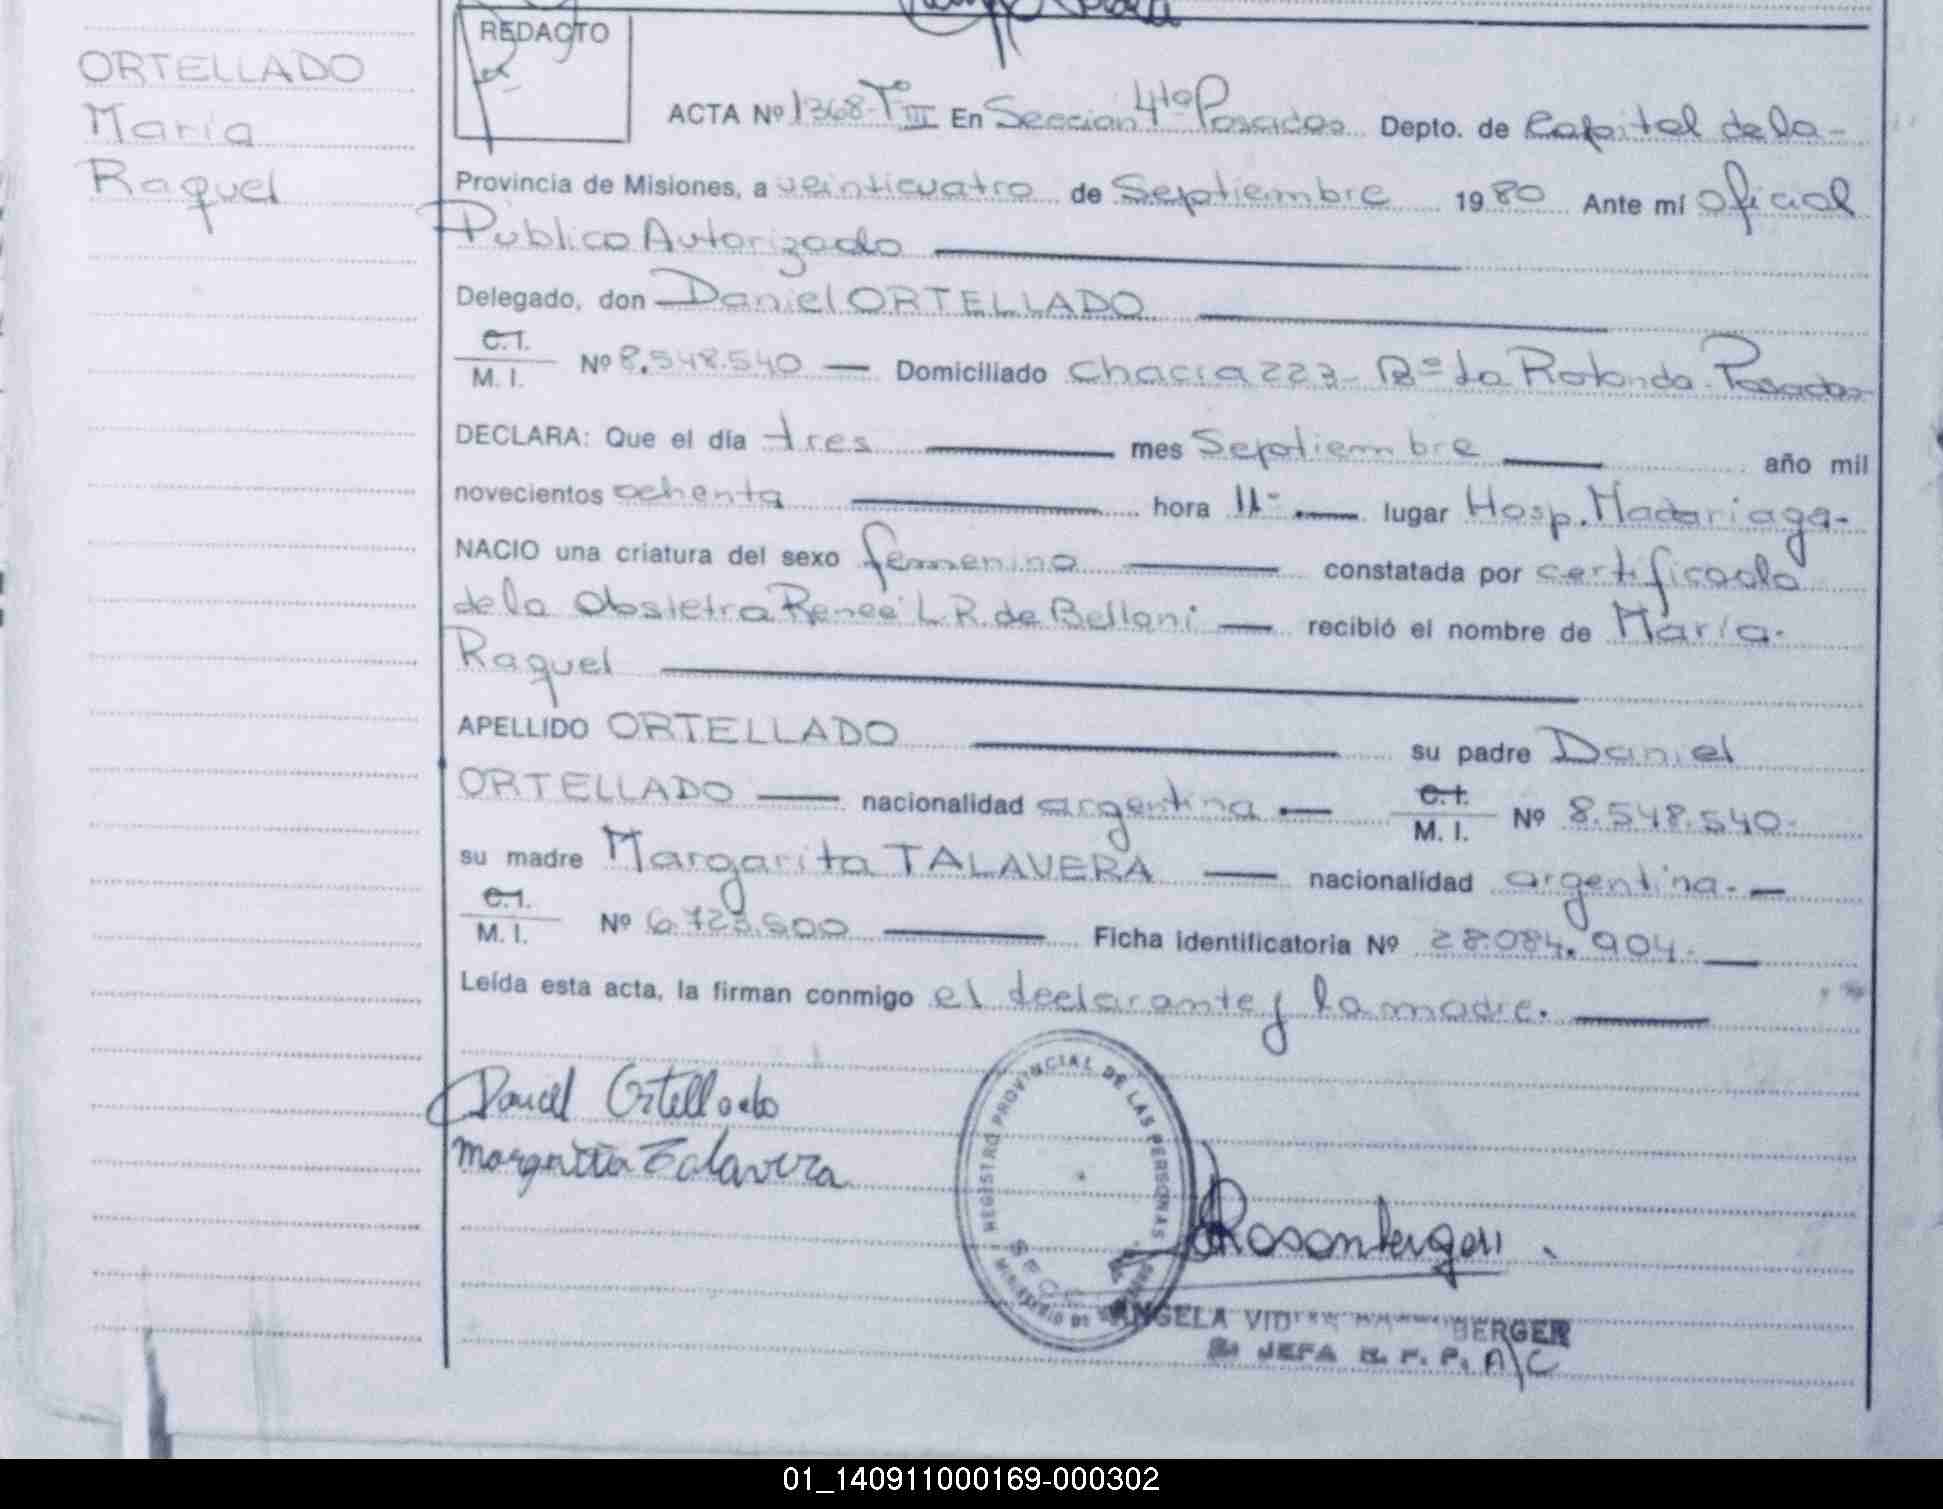 REDACTO
ORTELLADO
María
Raquel
ACTA Nº 1368-Tº III En Seccion 4ta Posadas Depto. de Capital de la-
Provincia de Misiones, a veinticuatro de Septiembre 1980 Ante mí Oficial
Público Autorizado
Delegado, don Daniel ORTELLADO
C.I.
M. I. Nº 8.548.540 — Domiciliado Chacra 223- Bº La Rotonda. Posadas
DECLARA: Que el día tres mes Septiembre año mil
novecientos ochenta hora 11- lugar Hosp. Madariaga-
NACIO una criatura del sexo femenino constatada por certificado
de la Obstetra Renee L.R. de Bellani — recibió el nombre de María-
Raquel
APELLIDO ORTELLADO su padre Daniel
ORTELLADO — nacionalidad argentina.— C.I.
M. I. Nº 8.548.540-
su madre Margarita TALAVERA — nacionalidad argentina.—
C.I.
M. I. Nº 6.723.500 — Ficha identificatoria Nº 28.084.904.—
Leída esta acta, la firman conmigo el declarante y la madre.
Daniel Ortellado
Margarita Talavera
REGISTRO PROVINCIAL DE LAS PERSONAS
MINISTERIO DE
ANGELA BERGER
JEFA A/C
01_140911000169-000302